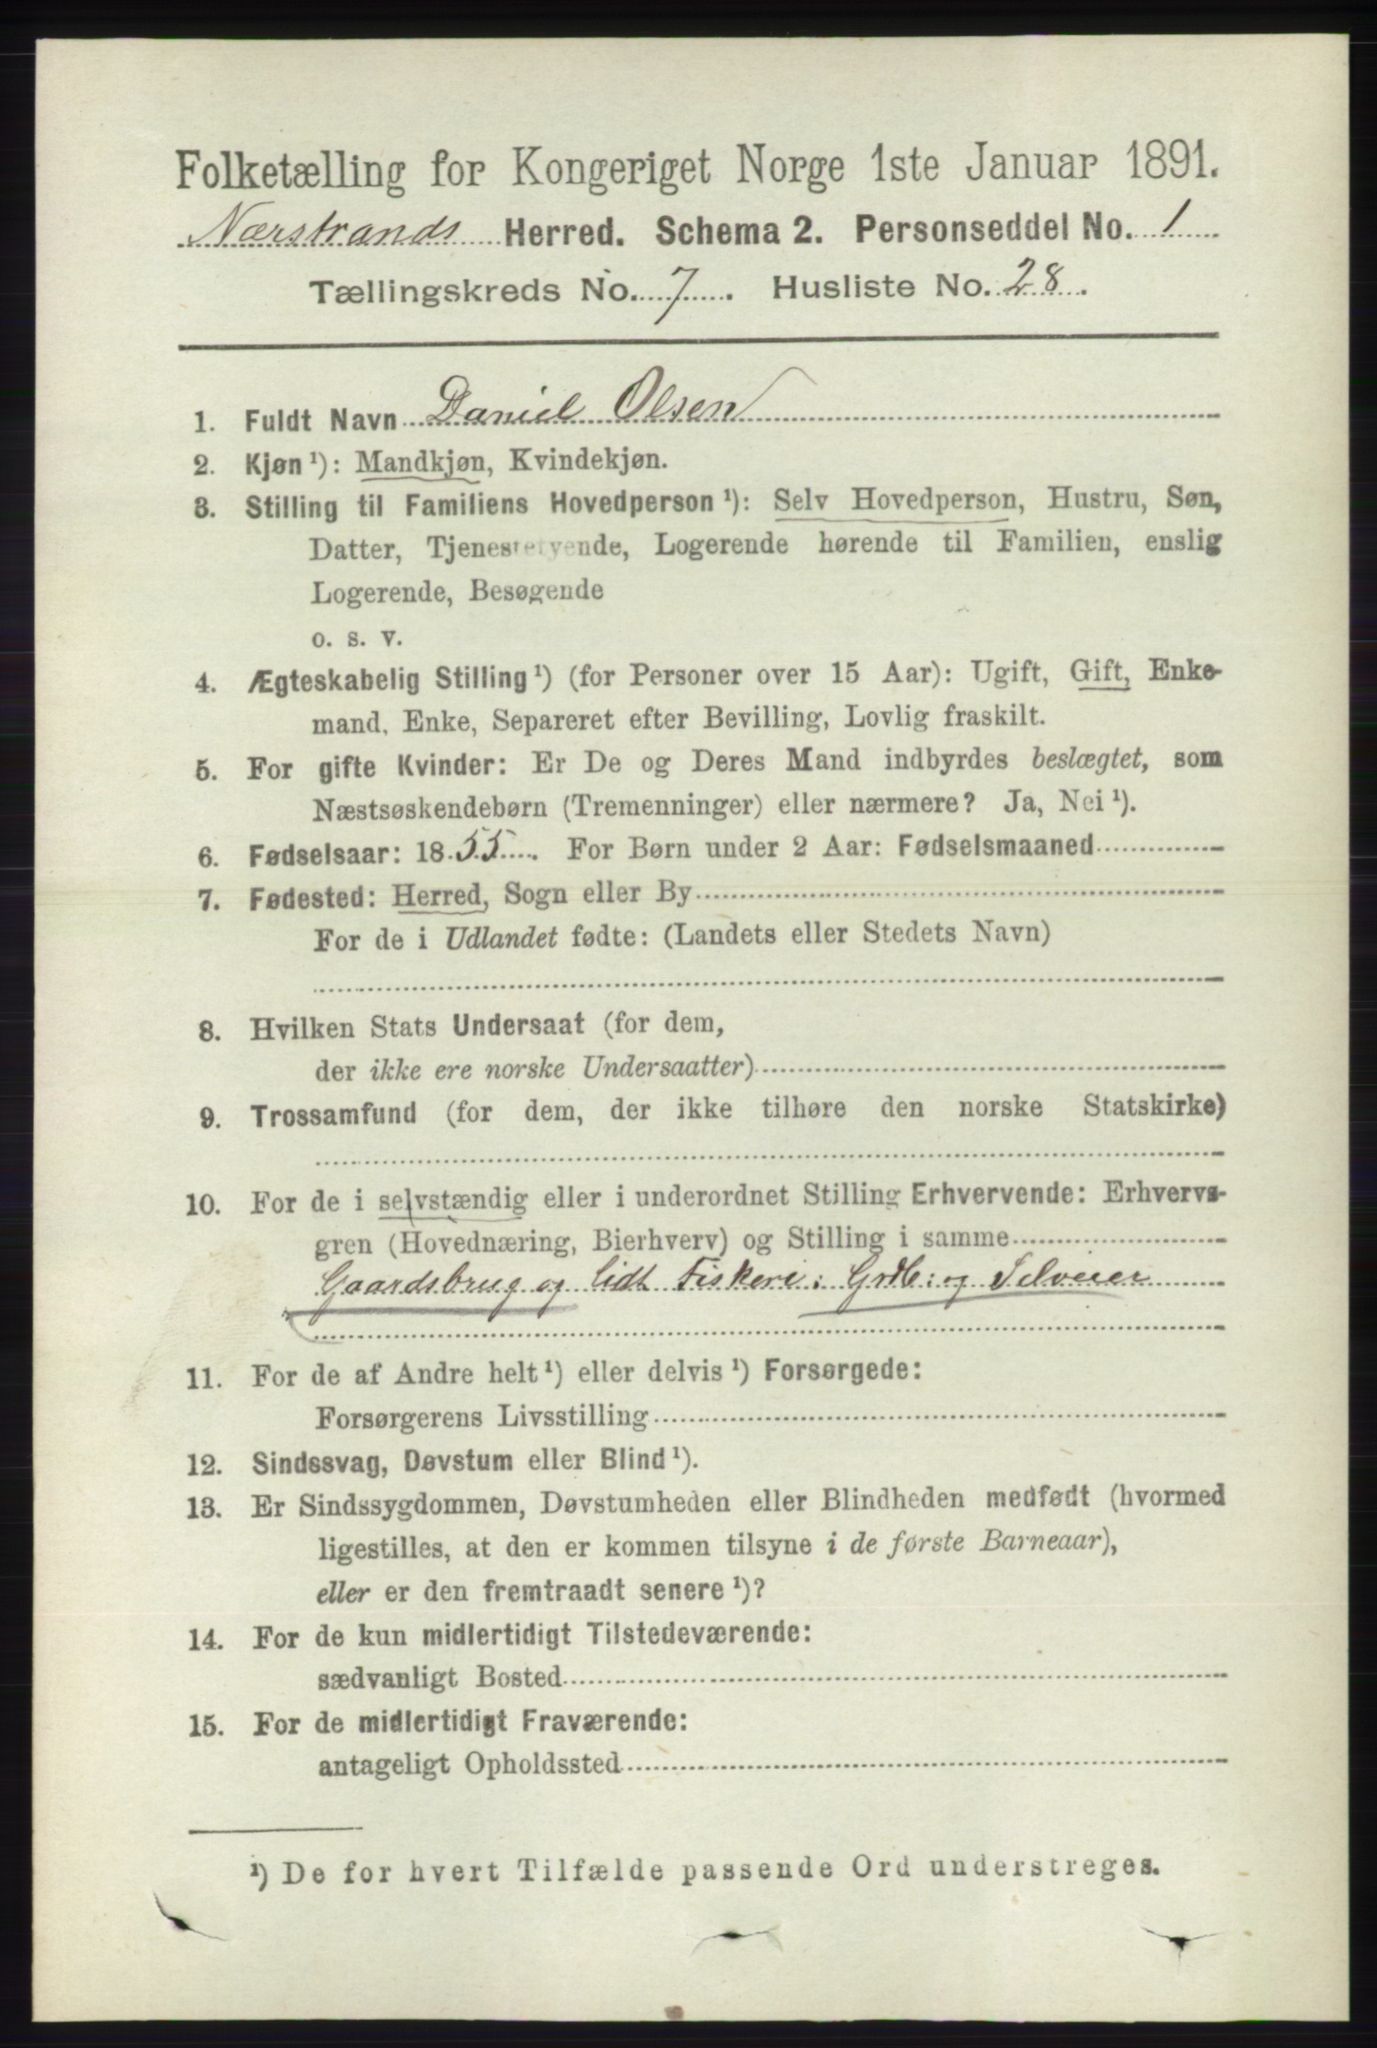 Folketælling for Kongeriget Norge 1ste Januar 1891.
Nærstrands Herred. Schema 2. Personseddel No. 1
Tællingskreds No. 7. Husliste No. 28.
1. Fuldt Navn Daniel Olsen
2. Kjøn¹): Mandkjøn, Kvindekjøn.
3. Stilling til Familiens Hovedperson¹): Selv Hovedperson, Hustru, Søn,
Datter, Tjenestetyende, Logerende hørende til Familien, enslig
Logerende, Besøgende
o. s. v.
4. Ægteskabelig Stilling¹) (for Personer over 15 Aar): Ugift, Gift, Enke-
mand, Enke, Separeret efter Bevilling, Lovlig fraskilt.
5. For gifte Kvinder: Er De og Deres Mand indbyrdes beslægtet, som
Næstsøskendebørn (Tremenninger) eller nærmere? Ja, Nei¹).
6. Fødselsaar: 1855. For Børn under 2 Aar: Fødselsmaaned
7. Fødested: Herred, Sogn eller By
For de i Udlandet fødte: (Landets eller Stedets Navn)
8. Hvilken Stats Undersaat (for dem,
der ikke ere norske Undersaatter)
9. Trossamfund (for dem, der ikke tilhøre den norske Statskirke)
10. For de i selvstændig eller i underordnet Stilling Erhvervende: Erhvervs-
gren (Hovednæring, Bierhverv) og Stilling i samme
Gaardsbrug og lidt Fiskeri: Grdb: og Selveier
11. For de af Andre helt¹) eller delvis¹) Forsørgede:
Forsørgerens Livsstilling
12. Sindssvag, Døvstum eller Blind¹).
13. Er Sindssygdommen, Døvstumheden eller Blindheden medfødt (hvormed
ligestilles, at den er kommen tilsyne i de første Barneaar),
eller er den fremtraadt senere¹)?
14. For de kun midlertidigt Tilstedeværende:
sædvanligt Bosted
15. For de midlertidigt Fraværende:
antageligt Opholdssted
¹) De for hvert Tilfælde passende Ord understreges.